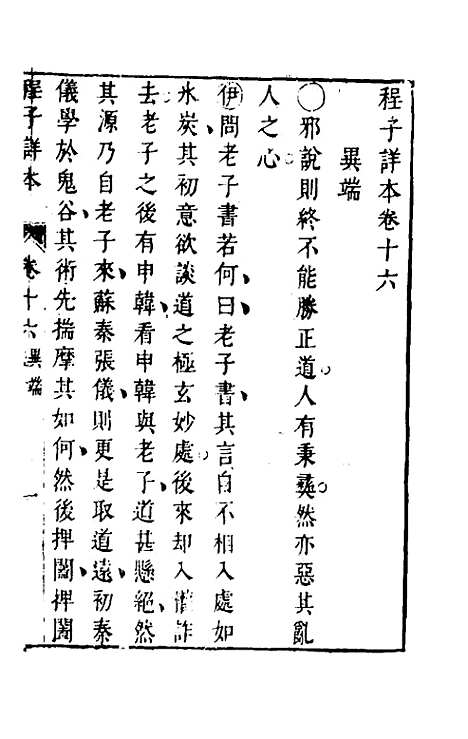 程子詳本卷十六
異端
〇邪說則終不能勝正道人有秉彝然亦惡其亂
人之心
伊問老子書若何曰老子書其言自不相入處如
氷炭其初意欲談道之極玄妙處後來却入 詐
去老子之後有申韓看申韓與老子道甚懸絕然
其源乃自老子來蘇秦張儀則更是取道遠初秦
儀學於鬼谷其術先揣摩其如何然後捭闔捭闔
程子詳本 卷十六 異端 一